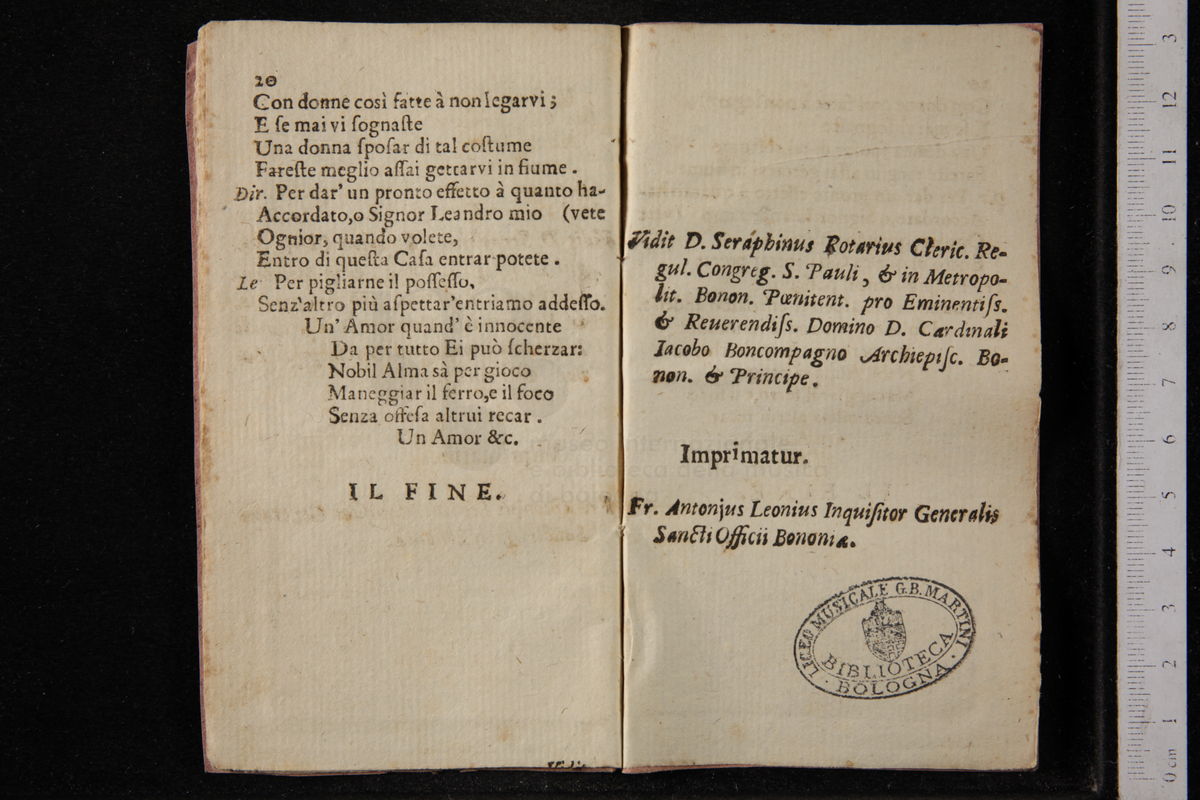 20
Con donne così fatte à non legarvi;
E ſe mai vi ſognaſte
Una donna ſpoſar di tal coſtume
Fareſte meglio aſſai gettarvi in fiume.
Dir. Per dar' un pronto effetto à quanto ha-
Accordato,o Signor Leandro mio (vete
Ognior, quando volete,
Entro di queſta Caſa entrar potete.
Le Per pigliarne il poſſeſſo,
Senz'altro più aſpettar'entriamo addeſſo.
Un' Amor quand' è innocente
Da per tutto Ei può ſcherzar:
Nobil Alma sà per gioco
Maneggiar il ferro,e il foco
Senza offeſa altrui recar.
Un Amor &c.
IL FINE.
Vidit D. Seraphinus Rotarius Cleric. Re-
gul. Congreg. S. Pauli, & in Metropo-
lit. Bonon. Pœnitent. pro Eminentiſs.
& Reuerendiſs. Domino D. Cardinali
Iacobo Boncompagno Archiepiſc. Bo-
non. & Principe.
Imprimatur.
Fr. Antonjus Leonius Inquiſitor Generalis
Sancti Officii Bononiæ.
LICEO MUSICALE G.B. MARTINI
BIBLIOTECA
· BOLOGNA ·
museo internazionale
biblioteca della musica
di bologna
3
12
11
10
9
8
7
6
5
4
3
2
1
0 cm